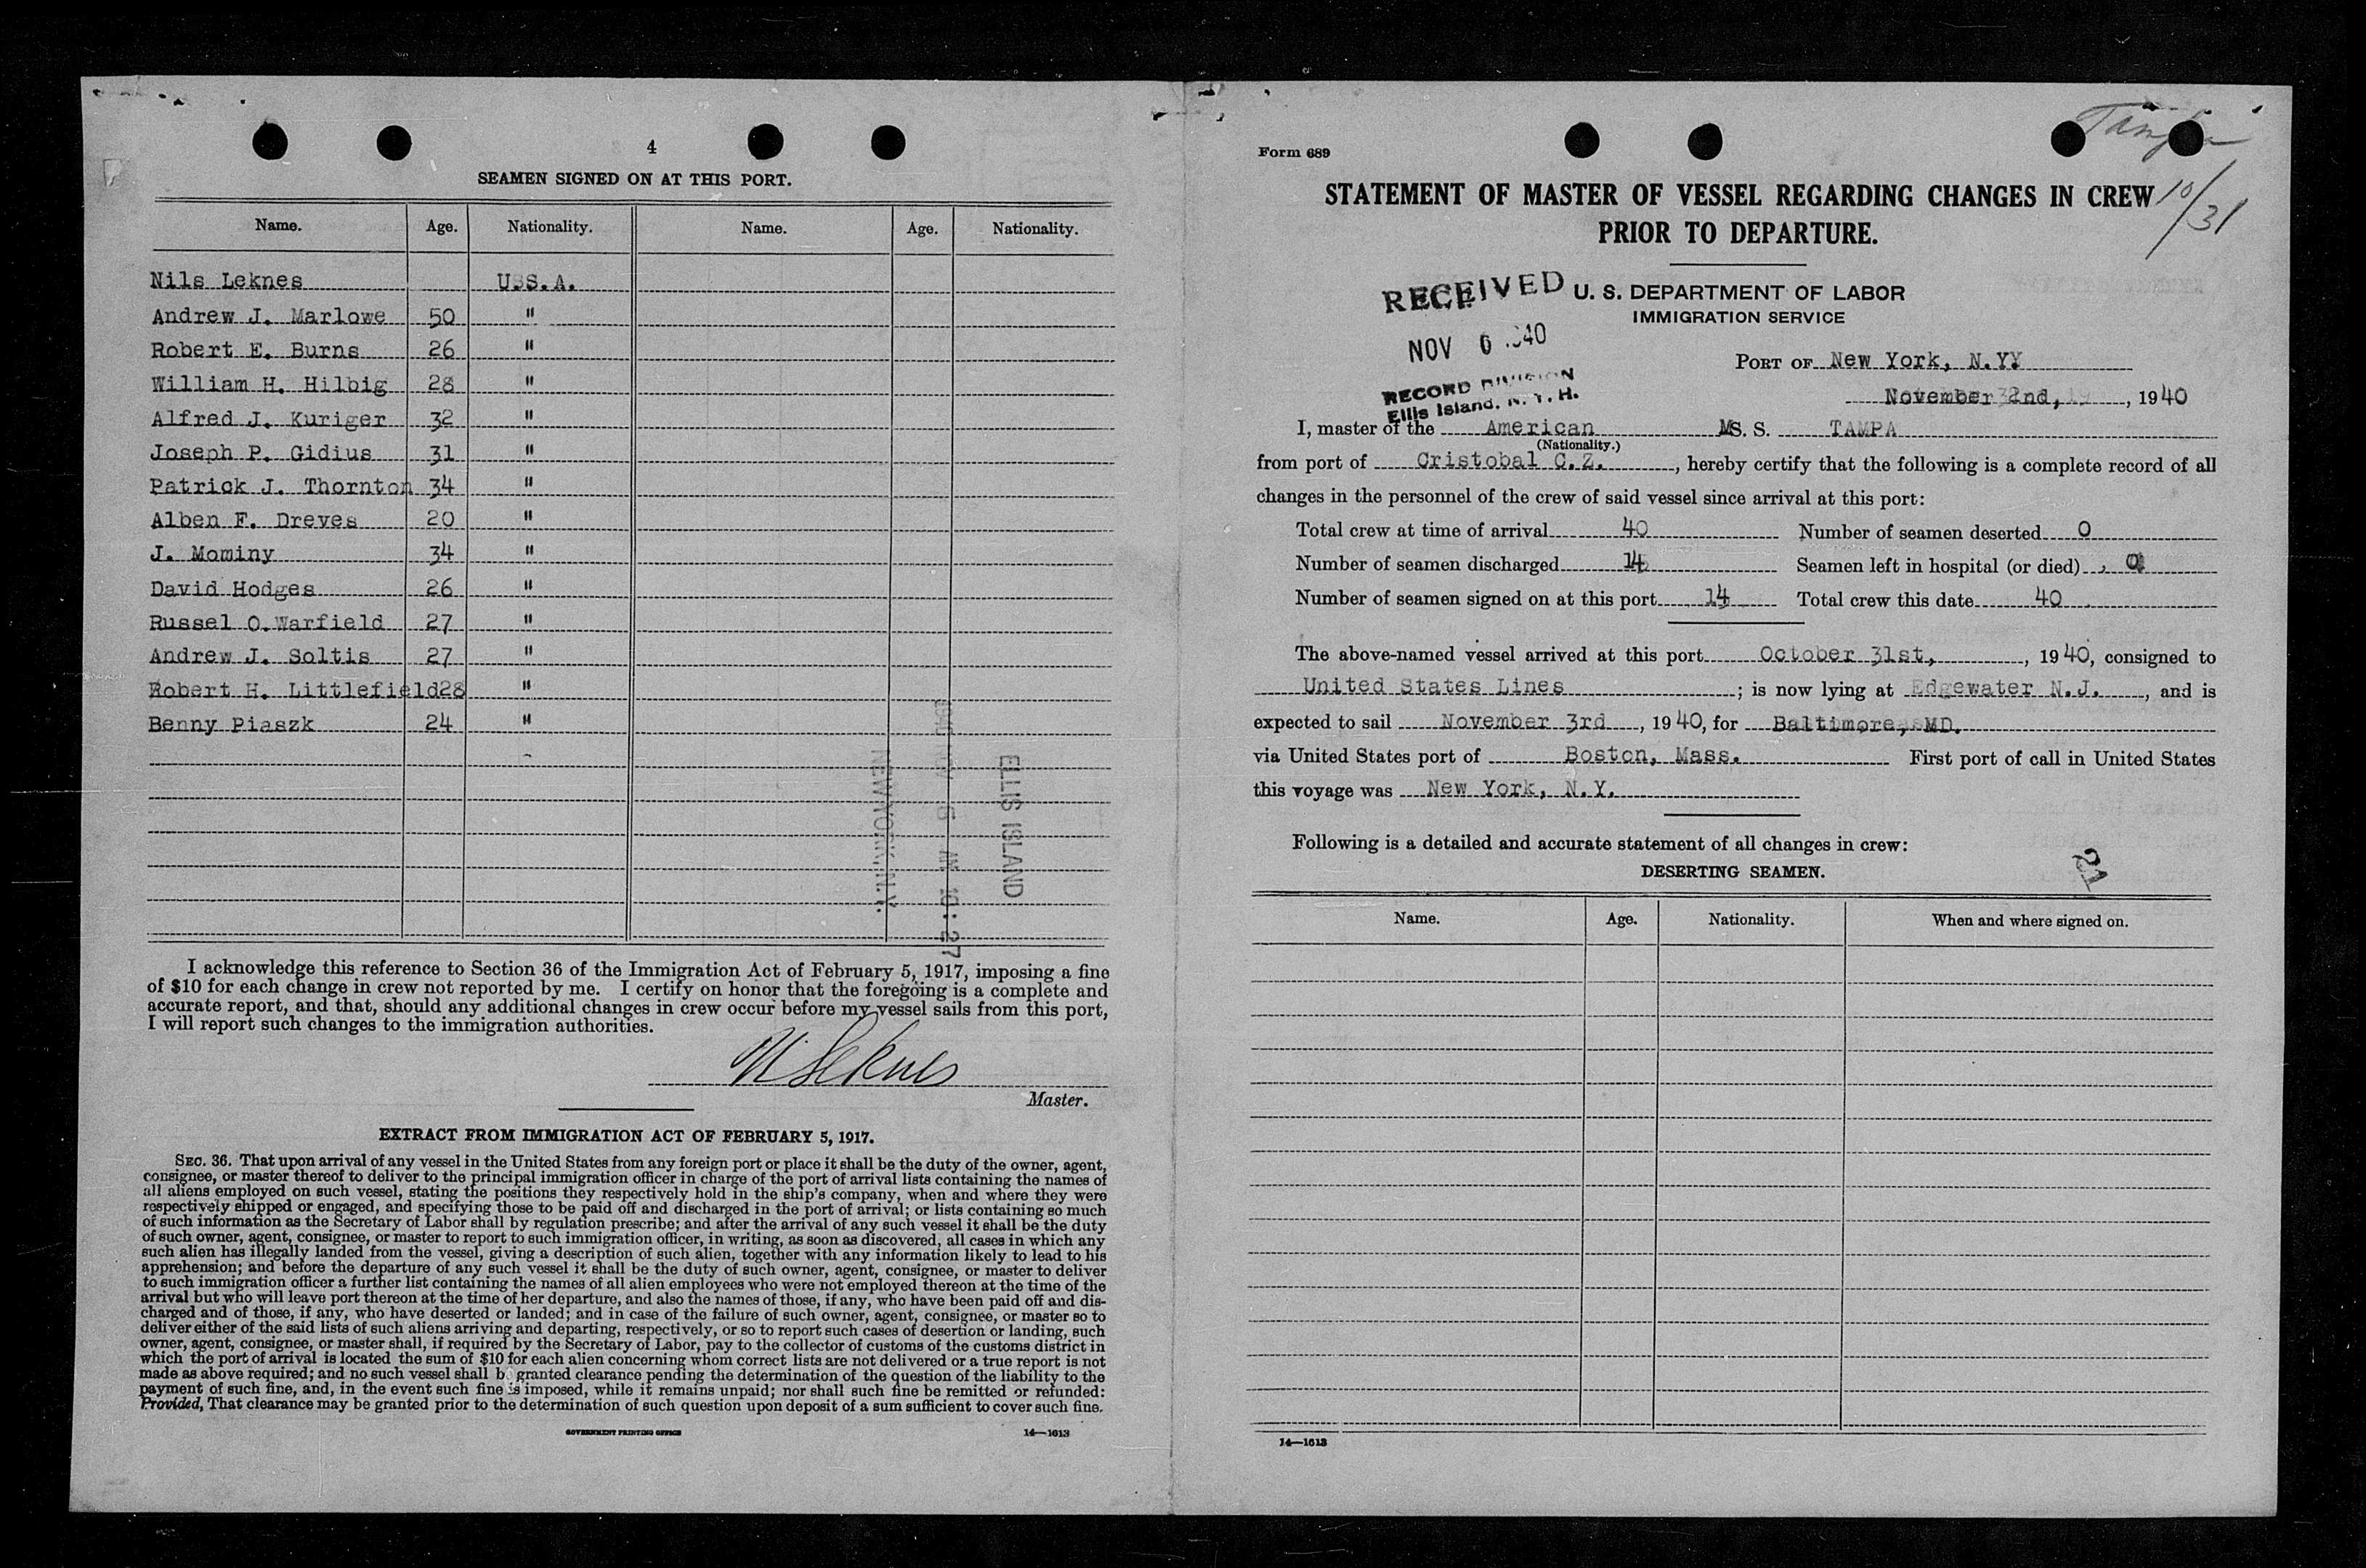 4
SEAMEN SIGNED ON AT THIS PORT.
Name. Age. Nationality. Name. Age. Nationality.
Nils Leknes U.S.A.
Andrew J. Marlowe 50 "
Robert E. Burns 26 "
William H. Hilbig 28 "
Alfred J. Kuriger 32 "
Joseph P. Gidius 31 "
Patrick J. Thornton 34 "
Alben F. Dreves 20 "
J. Mominy 34 "
David Hodges 26 "
Russel O. Warfield 27 "
Andrew J. Soltis 27 "
Robert H. Littlefield 28 "
Benny Piaszk 24 "
ELLIS ISLAND
AM 10:27
NEW YORK, N.Y.
I acknowledge this reference to Section 36 of the Immigration Act of February 5, 1917, imposing a fine
of $10 for each change in crew not reported by me. I certify on honor that the foregoing is a complete and
accurate report, and that, should any additional changes in crew occur before my vessel sails from this port,
I will report such changes to the immigration authorities.
N Leknes
Master.
EXTRACT FROM IMMIGRATION ACT OF FEBRUARY 5, 1917.
SEC. 36. That upon arrival of any vessel in the United States from any foreign port or place it shall be the duty of the owner, agent,
consignee, or master thereof to deliver to the principal immigration officer in charge of the port of arrival lists containing the names of
all aliens employed on such vessel, stating the positions they respectively hold in the ship's company, when and where they were
respectively shipped or engaged, and specifying those to be paid off and discharged in the port of arrival; or lists containing so much
of such information as the Secretary of Labor shall by regulation prescribe; and after the arrival of any such vessel it shall be the duty
of such owner, agent, consignee, or master to report to such immigration officer, in writing, as soon as discovered, all cases in which any
such alien has illegally landed from the vessel, giving a description of such alien, together with any information likely to lead to his
apprehension; and before the departure of any such vessel it shall be the duty of such owner, agent, consignee, or master to deliver
to such immigration officer a further list containing the names of all alien employees who were not employed thereon at the time of the
arrival but who will leave port thereon at the time of her departure, and also the names of those, if any, who have been paid off and dis-
charged and of those, if any, who have deserted or landed; and in case of the failure of such owner, agent, consignee, or master so to
deliver either of the said lists of such aliens arriving and departing, respectively, or so to report such cases of desertion or landing, such
owner, agent, consignee, or master shall, if required by the Secretary of Labor, pay to the collector of customs of the customs district in
which the port of arrival is located the sum of $10 for each alien concerning whom correct lists are not delivered or a true report is not
made as above required; and no such vessel shall be granted clearance pending the determination of the question of the liability to the
payment of such fine, and, in the event such fine is imposed, while it remains unpaid; nor shall such fine be remitted or refunded:
Provided, That clearance may be granted prior to the determination of such question upon deposit of a sum sufficient to cover such fine.
GOVERNMENT PRINTING OFFICE 14—1613
Tampa
10/31
Form 689
STATEMENT OF MASTER OF VESSEL REGARDING CHANGES IN CREW
PRIOR TO DEPARTURE.
U. S. DEPARTMENT OF LABOR
IMMIGRATION SERVICE
RECEIVED
NOV 6 1940
RECORD DIVISION
Ellis Island, N. Y. H.
PORT OF New York, N.Y.
November 2nd, , 1940
I, master of the American MS. S. TAMPA
(Nationality.)
from port of Cristobal C.Z. , hereby certify that the following is a complete record of all
changes in the personnel of the crew of said vessel since arrival at this port:
Total crew at time of arrival 40 Number of seamen deserted 0
Number of seamen discharged 14 Seamen left in hospital (or died) 0
Number of seamen signed on at this port 14 Total crew this date 40
The above-named vessel arrived at this port October 31st, , 1940, consigned to
United States Lines ; is now lying at Edgewater N.J. , and is
expected to sail November 3rd , 1940, for Baltimore, MD.
via United States port of Boston, Mass. First port of call in United States
this voyage was New York, N.Y.
Following is a detailed and accurate statement of all changes in crew:
21
DESERTING SEAMEN.
Name. Age. Nationality. When and where signed on.
14—1613